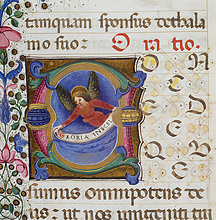 tanquam sponsus dethala
mo suo: Oratio.
O N
GLORIA IN EXCE
sumus omnipotens de
us: ut nos unigeniti tu